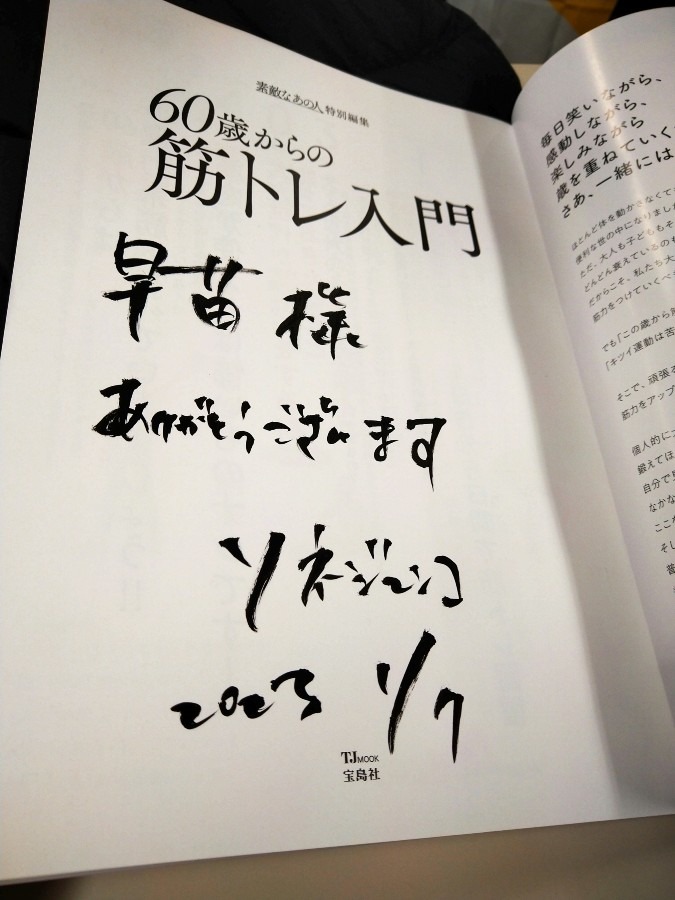 素敵なあの人特別編集
60歳からの
筋トレ入門
早苗 様
ありがとうございます
ソネジュンコ
2023 1/7
TJMOOK
宝島社
毎日笑いながら、
感動しながら、
楽しみながら
歳を重ねていく
さあ、一緒には
ほとんど体を動かさなくて
便利な世の中になりまし
ただ、大人も子どももそ
どんどん衰えているのも
だからこそ、私たち大
筋力をつけていくべ
でも「この歳から
「キツイ運動は苦
そこで、頑張
筋力をアップ
個人的に
鍛えてほ
自分で
なかな
ここ
そし